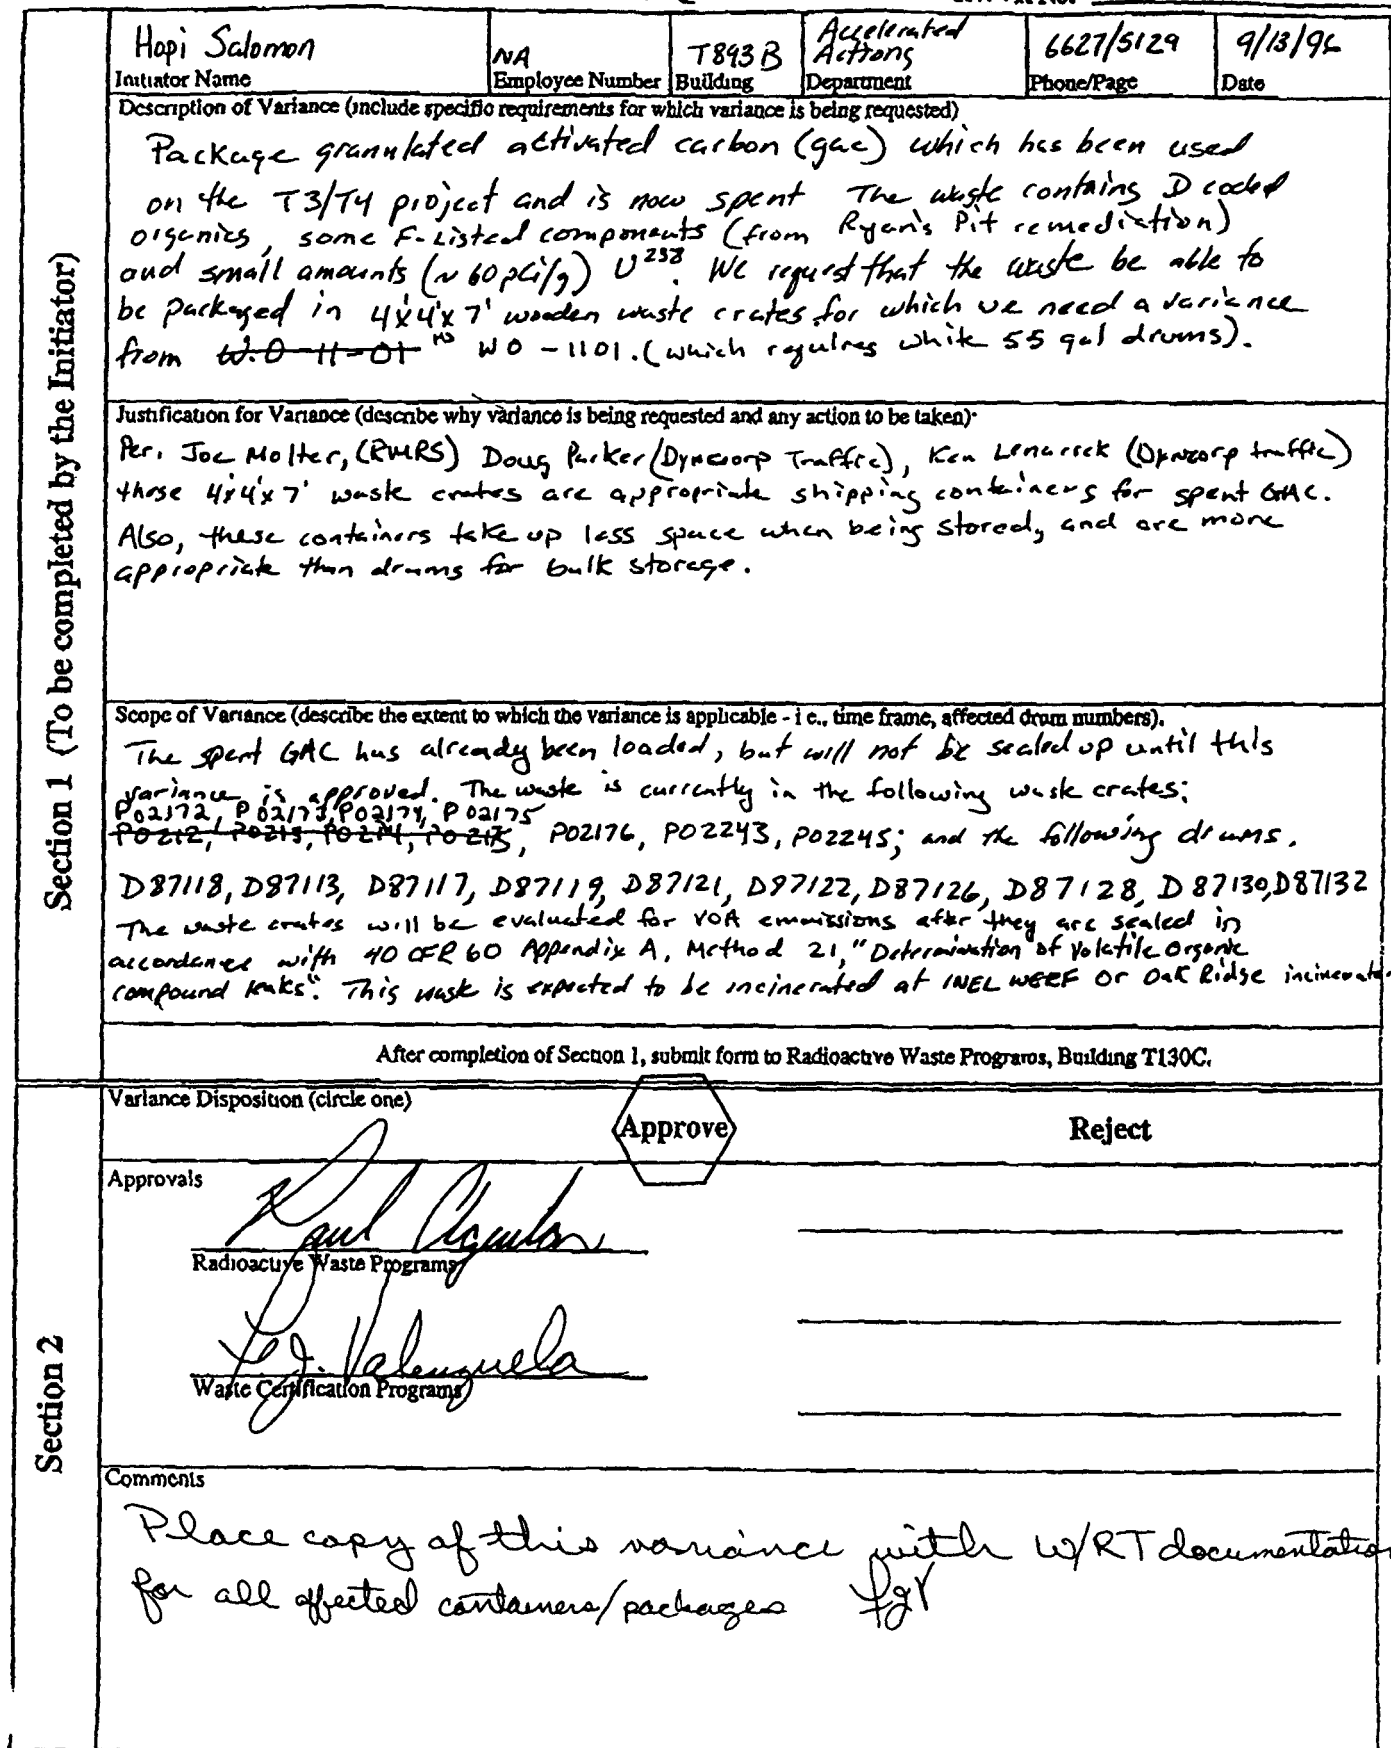 Hopi Salomon NA T893B Accelerated Actions 6627/5129 9/13/96
Initiator Name Employee Number Building Department Phone/Page Date
Section 1 (To be completed by the Initiator)
Description of Variance (include specific requirements for which variance is being requested)
Package granulated activated carbon (gac) which has been used
on the T3/T4 project and is now spent The waste contains D coded
organics, some F-Listed components (from Ryan's Pit remediation)
and small amounts (~60 pCi/g) U238. We request that the waste be able to
be packaged in 4'x4'x7' wooden waste crates for which we need a variance
from W.O-11-01 WO-1101. (which requires white 55 gal drums).
Justification for Variance (describe why variance is being requested and any action to be taken)
Per. Joe Molter, (RMRS) Doug Parker (Dyncorp Traffic), Ken Lenarcek (Dyncorp traffic)
these 4'x4'x7' waste crates are appropriate shipping containers for spent GAC.
Also, these containers take up less space when being stored, and are more
appropriate than drums for bulk storage.
Scope of Variance (describe the extent to which the variance is applicable - i e., time frame, affected drum numbers).
The spent GAC has already been loaded, but will not be sealed up until this
variance is approved. The waste is currently in the following waste crates;
P02172, P02173, P02174, P02175
P0212, P0213, P0214, P0215, P02176, P02243, P02245; and the following drums.
D87118, D87113, D87117, D87119, D87121, D97122, D87126, D87128, D87130, D87132
The waste crates will be evaluated for VOA emmissions after they are sealed in
accordance with 40 CFR 60 Appendix A, Method 21, "Determination of Volatile Organic
compound leaks". This waste is expected to be incinerated at INEL WERF or Oak Ridge incinerator
After completion of Section 1, submit form to Radioactive Waste Programs, Building T130C.
Section 2
Variance Disposition (circle one) Approve Reject
Approvals
Radioactive Waste Programs
L.J. Valenzuela
Waste Certification Programs
Comments
Place copy of this variance with W/RT documentation
for all affected containers/packages LJV